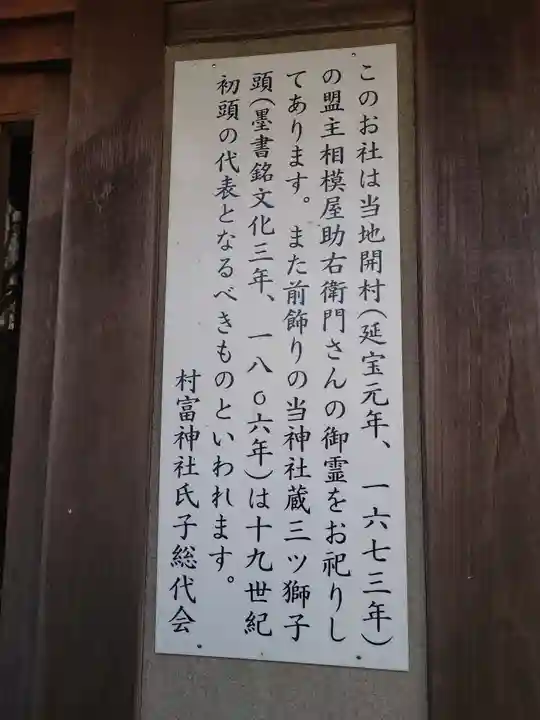 このお社は当地開村(延宝元年、一六七三年)
の盟主相模屋助右衛門さんの御霊をお祀りし
てあります。また前飾りの当神社蔵三ツ獅子
頭(墨書銘文化三年、一八〇六年)は十九世紀
初頭の代表となるべきものといわれます。
村富神社氏子総代会